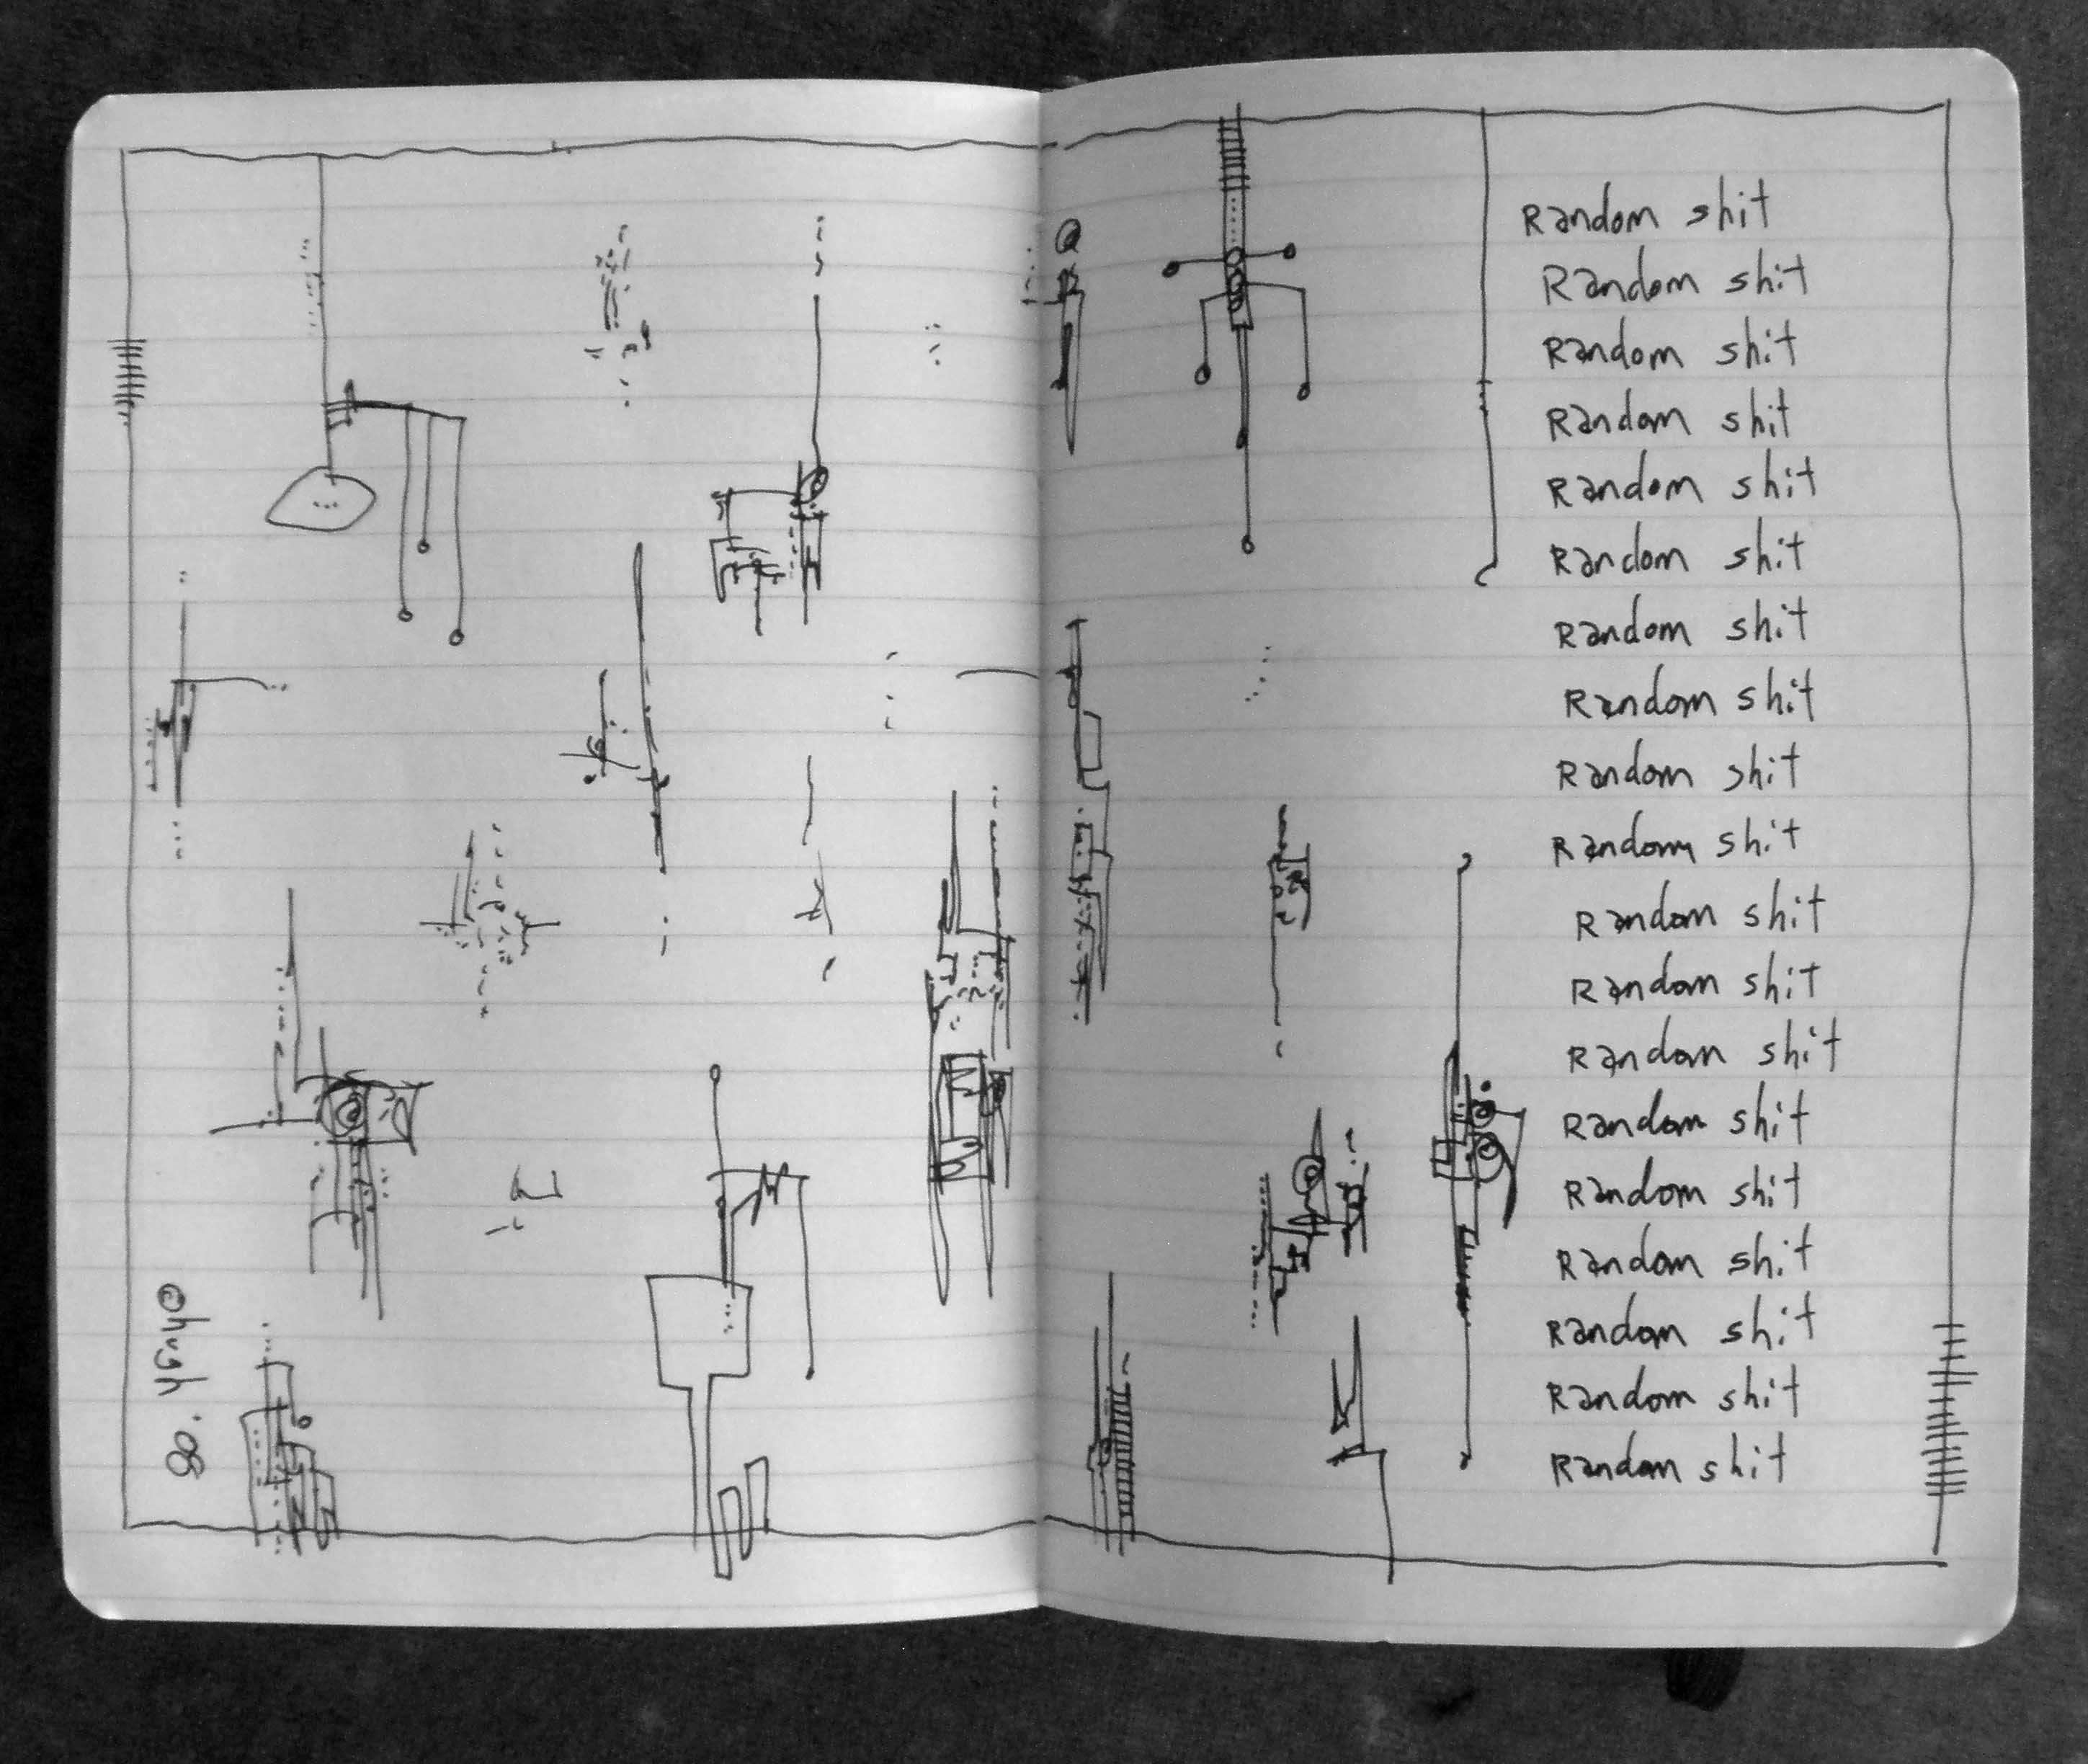 ©hugh '08
Random shit
Random shit
Random shit
Random shit
Random shit
Random shit
Random shit
Random shit
Random shit
Random shit
Random shit
Random shit
Random shit
Random shit
Random shit
Random shit
Random shit
Random shit
Random shit